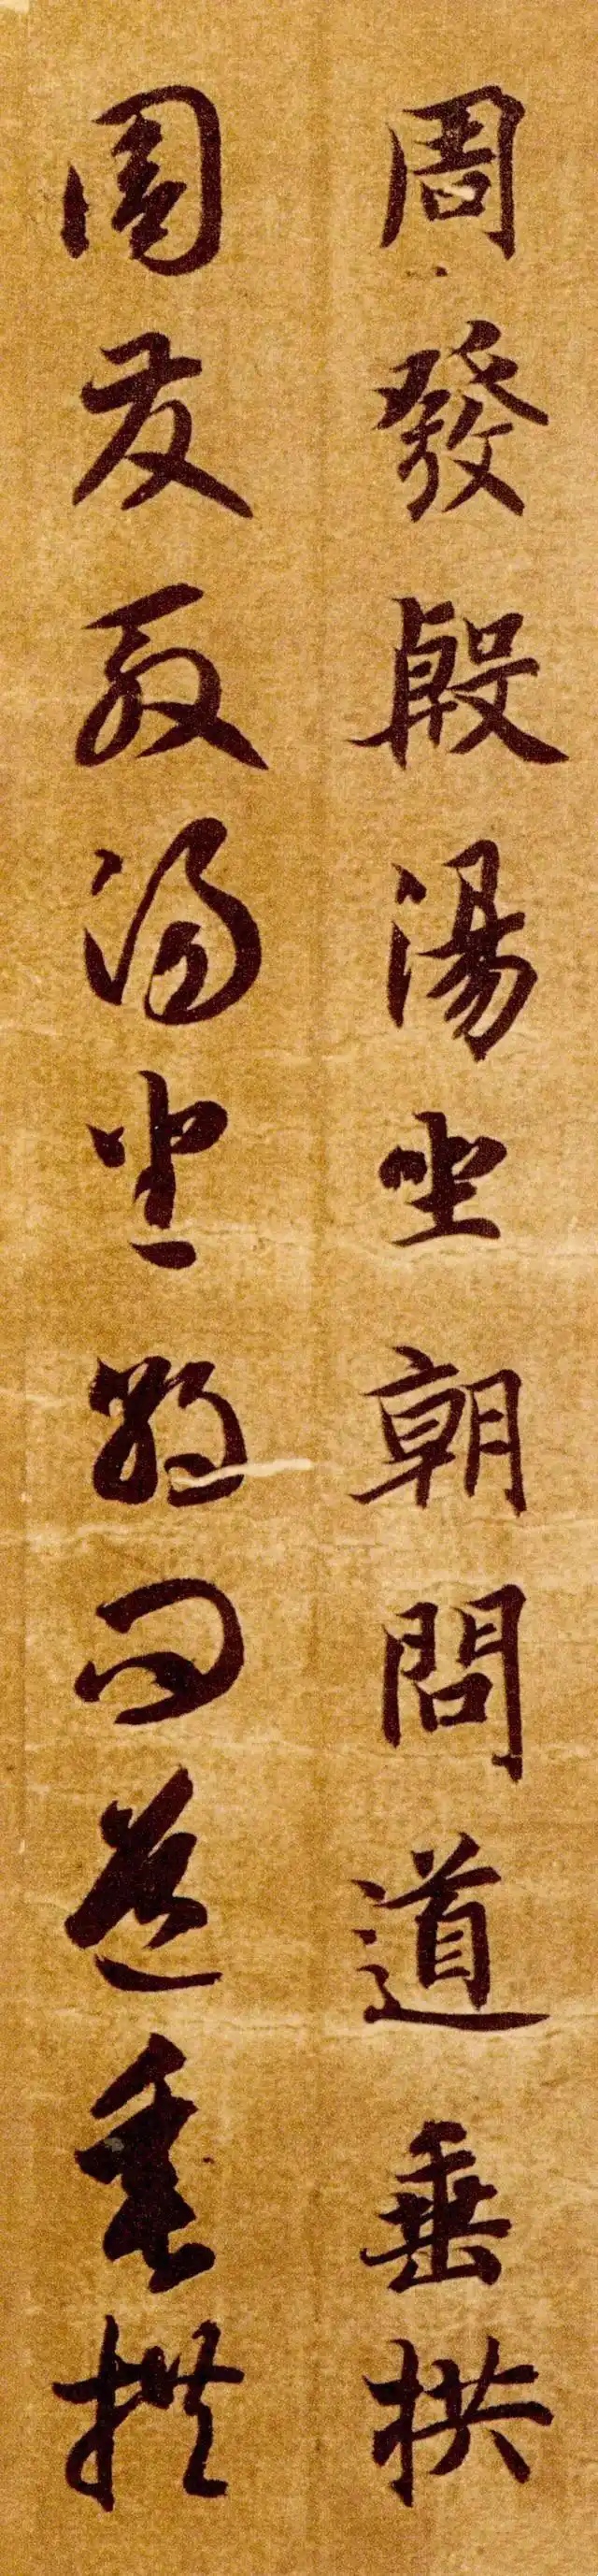 周發殷湯坐朝問道垂拱
周發殷湯坐朝問道垂拱